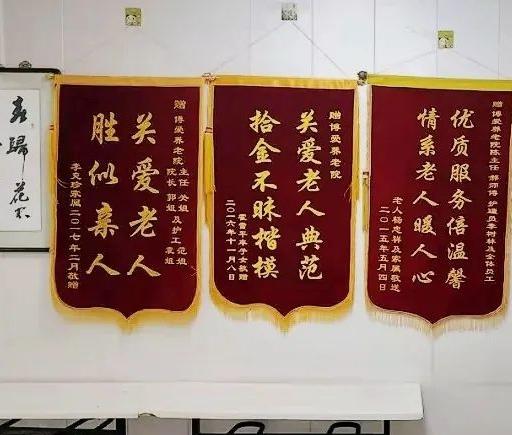 歸花
赠 博爱养老院主任 关姐
院长 郭姐 及护工 范姐
袁姐
关爱老人
胜似亲人
李克珍家属二〇一七年二月敬赠
赠 博爱养老院
关爱老人典范
拾金不昧楷模
二〇一六年十一月八日
赠 博爱养老院陈主任 郝师傅 护理员李树林及全体员工
优质服务倍温馨
情系老人暖人心
老人杨忠祥及家属敬送
二〇一五年五月四日